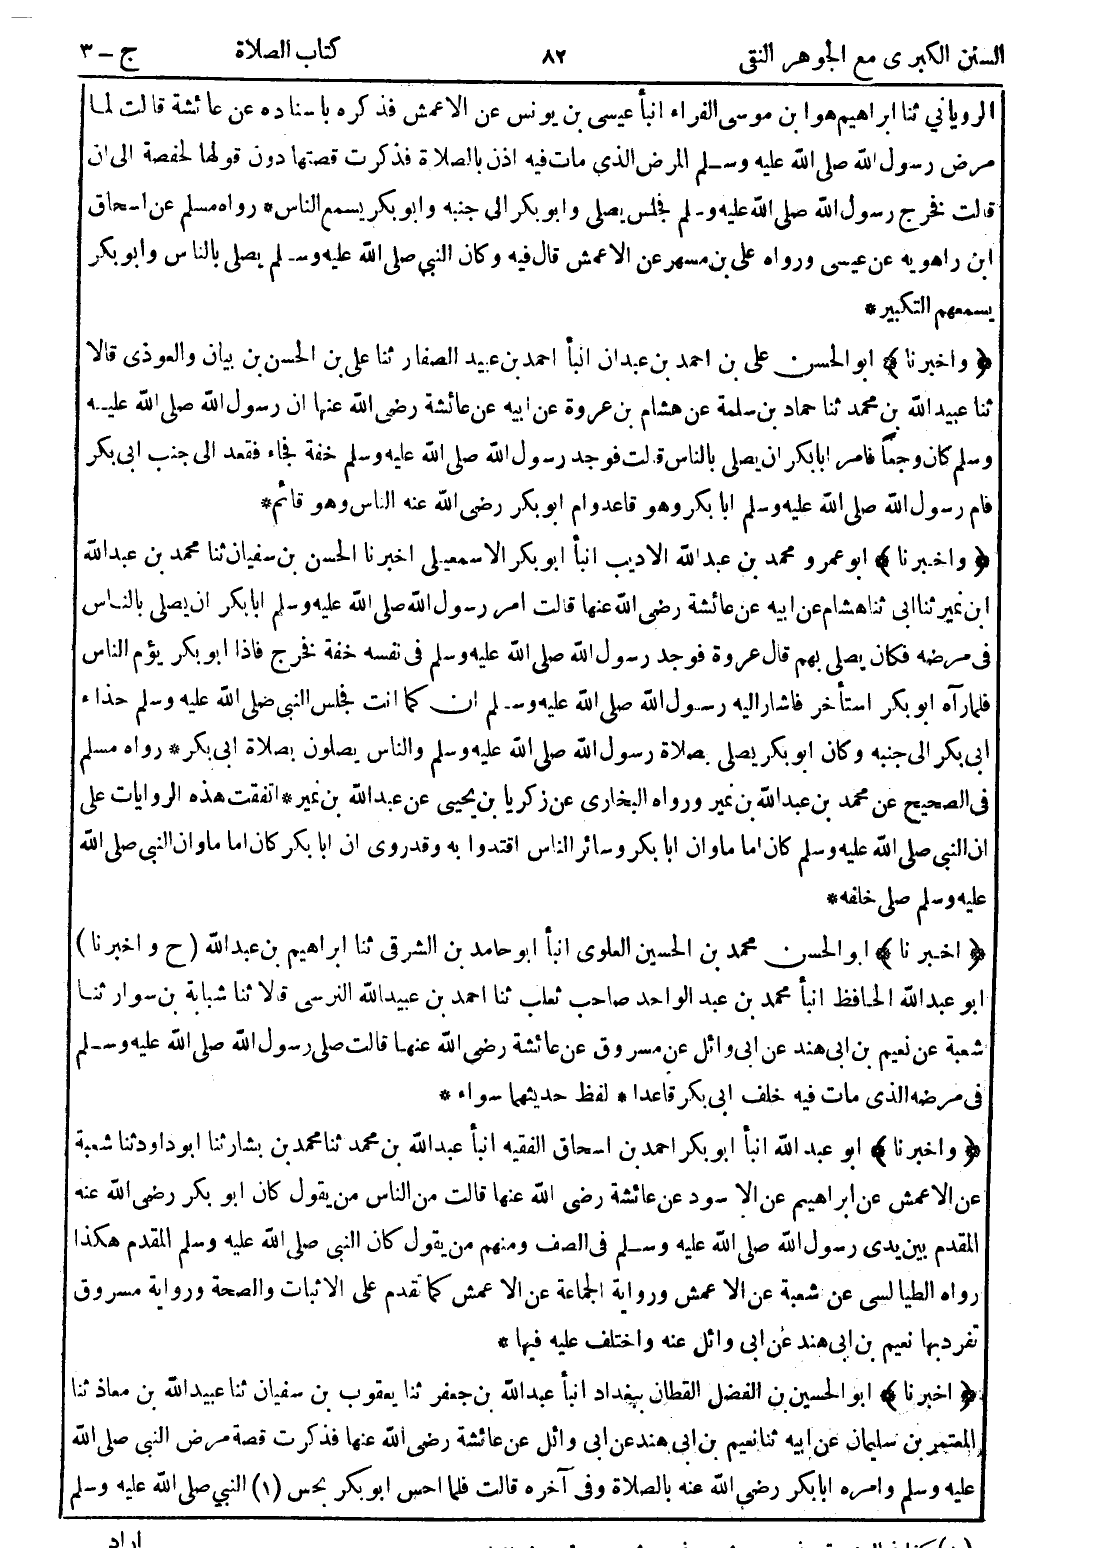 السنن الكبرى مع الجوهر النقى ٨٢ كتاب الصلاة ج - ٣
الروياني ثنا ابراهيم هو ابن موسى الفراء انبأ عيسى بن يونس عن الاعمش فذكره باسناده عن عائشة قالت لما
مرض رسول الله صلى الله عليه وسلم المرض الذي مات فيه اذن بالصلاة فذكرت قصتها دون قولها لحفصة الى ان
قالت فخرج رسول الله صلى الله عليه وسلم فجلس يصلى وابو بكر الى جنبه وابو بكر يسمع الناس * رواه مسلم عن اسحاق
ابن راهويه عن عيسى ورواه على بن مسهر عن الاعمش قال فيه وكان النبي صلى الله عليه وسلم يصلى بالناس وابو بكر
يسمعهم التكبير *
﴿ واخبرنا ﴾ ابو الحسن على بن احمد بن عبدان انبأ احمد بن عبيد الصفار ثنا على بن الحسن بن بيان والعوذى قالا
ثنا عبيد الله بن محمد ثنا حماد بن سلمة عن هشام بن عروة عن ابيه عن عائشة رضى الله عنها ان رسول الله صلى الله عليه
وسلم كان وجعاً فامر ابا بكر ان يصلى بالناس قالت فوجد رسول الله صلى الله عليه وسلم خفة فجاء فقعد الى جنب ابى بكر
فام رسول الله صلى الله عليه وسلم ابا بكر وهو قاعد وام ابو بكر رضى الله عنه الناس وهو قائم *
﴿ واخبرنا ﴾ ابو عمرو محمد بن عبد الله الاديب انبأ ابو بكر الاسمعيلى اخبرنا الحسن بن سفيان ثنا محمد بن عبد الله
ابن نمير ثنا ابى ثنا هشام عن ابيه عن عائشة رضى الله عنها قالت امر رسول الله صلى الله عليه وسلم ابا بكر ان يصلى بالناس
فى مرضه فكان يصلى بهم قال عروة فوجد رسول الله صلى الله عليه وسلم فى نفسه خفة فخرج فاذا ابو بكر يؤم الناس
فلما رآه ابو بكر استأخر فاشار اليه رسول الله صلى الله عليه وسلم ان كما انت فجلس النبى صلى الله عليه وسلم حذاء
ابى بكر الى جنبه وكان ابو بكر يصلى بصلاة رسول الله صلى الله عليه وسلم والناس يصلون بصلاة ابى بكر * رواه مسلم
فى الصحيح عن محمد بن عبد الله بن نمير ورواه البخارى عن زكريا بن يحيى عن عبد الله بن نمير * اتفقت هذه الروايات على
ان النبى صلى الله عليه وسلم كان اماما وان ابا بكر وسائر الناس اقتدوا به وقد روى ان ابا بكر كان اماما وان النبى صلى الله
عليه وسلم صلى خلفه *
﴿ اخبرنا ﴾ ابو الحسن محمد بن الحسين العلوى انبأ ابو حامد بن الشرقى ثنا ابراهيم بن عبد الله ( ح واخبرنا )
ابو عبد الله الحافظ انبأ محمد بن عبد الواحد صاحب ثعلب ثنا احمد بن عبيد الله النرسى قالا ثنا شبابة بن سوار ثنا
شعبة عن نعيم بن ابى هند عن ابى وائل عن مسروق عن عائشة رضى الله عنها قالت صلى رسول الله صلى الله عليه وسلم
فى مرضه الذى مات فيه خلف ابى بكر قاعدا * لفظ حديثهما سواء *
﴿ واخبرنا ﴾ ابو عبد الله انبأ ابو بكر احمد بن اسحاق الفقيه انبأ عبد الله بن محمد ثنا محمد بن بشار ثنا ابو داود ثنا شعبة
عن الاعمش عن ابراهيم عن الاسود عن عائشة رضى الله عنها قالت من الناس من يقول كان ابو بكر رضى الله عنه
المقدم بين يدى رسول الله صلى الله عليه وسلم فى الصف ومنهم من يقول كان النبى صلى الله عليه وسلم المقدم هكذا
رواه الطيالسى عن شعبة عن الاعمش ورواية الجماعة عن الاعمش كما تقدم على الاثبات والصحة ورواية مسروق
تفرد بها نعيم بن ابى هند عن ابى وائل عنه واختلف عليه فيها *
﴿ اخبرنا ﴾ ابو الحسين بن الفضل القطان ببغداد انبأ عبد الله بن جعفر ثنا يعقوب بن سفيان ثنا عبيد الله بن معاذ ثنا
المعتمر بن سليمان عن ابيه ثنا نعيم بن ابى هند عن ابى وائل عن عائشة رضى الله عنها فذكرت قصة مرض النبى صلى الله
عليه وسلم وامره ابا بكر رضى الله عنه بالصلاة وفى آخره قالت فلما احس ابو بكر بحس (١) النبي صلى الله عليه وسلم
اراد